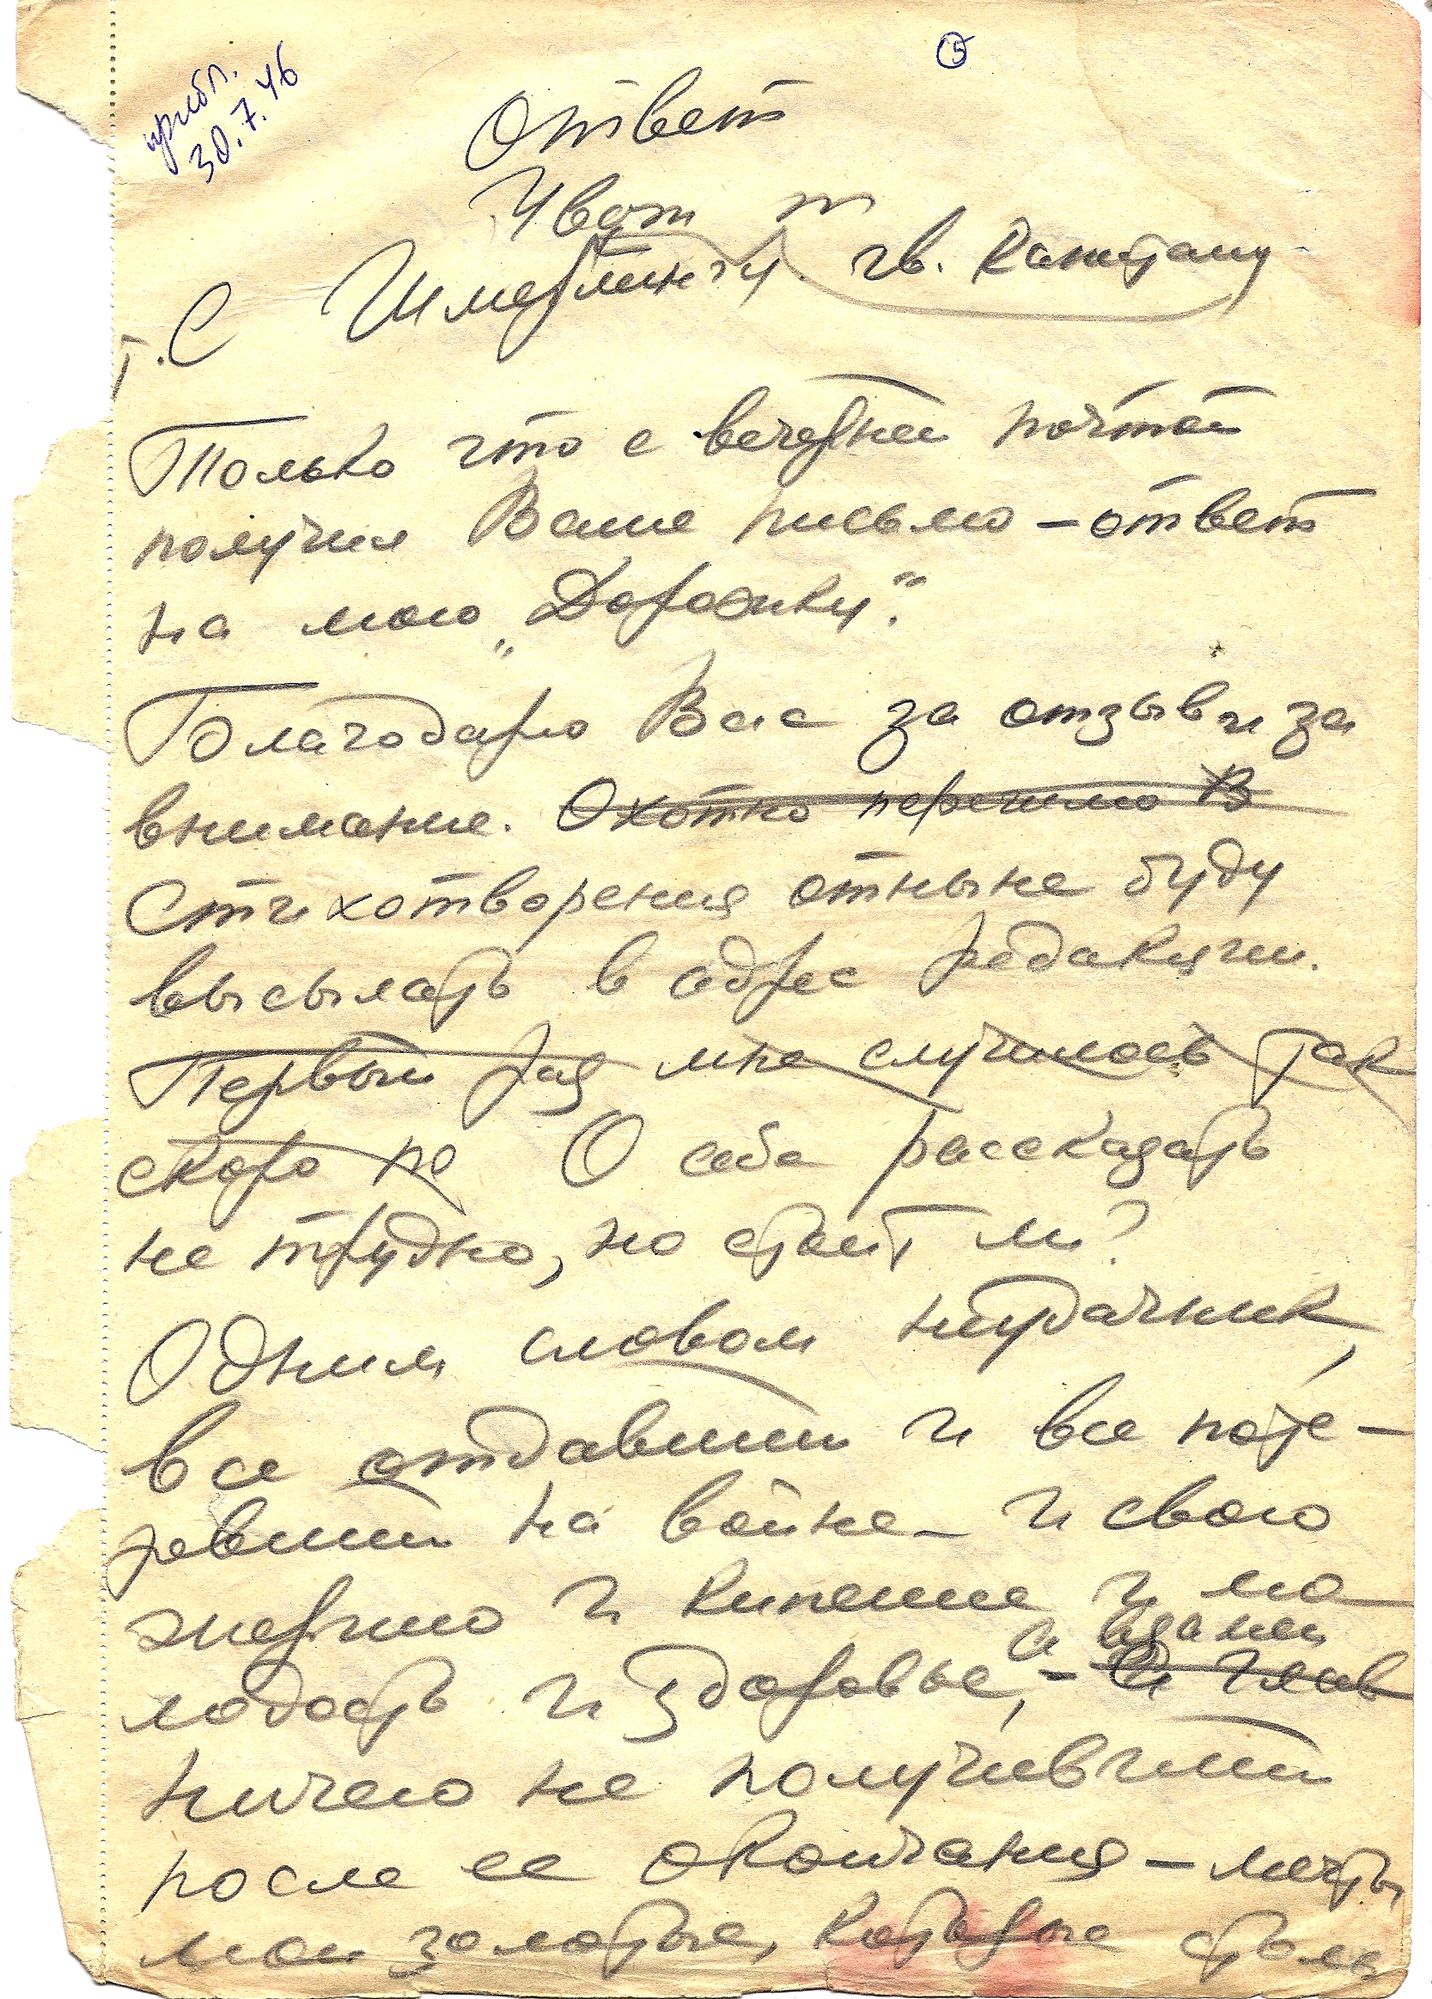 прибл.
30.7.46
5
Ответ
Уваж т
т. С Шмерлингу гв. Капитану
Только что с вечерней почтой
получил Ваше письмо – ответ
на мою „Дорожку".
Благодарю Вас за отзыв и за
внимание. Охотно перечишо В
Стихотворения отныне буду
высылать в адрес редакции.
Первый раз мне случилось так
скоро по О себе рассказать
не трудно, но стоит ли?
Одним словом неудачник,
все отдавший и все поте-
ревший на войне – и свою
энергию и кипение и мо-
а взамен
лодость и здоровье, – и глав
ничего не получивший
после ее окончания – мечты
мои золотые, которые столь